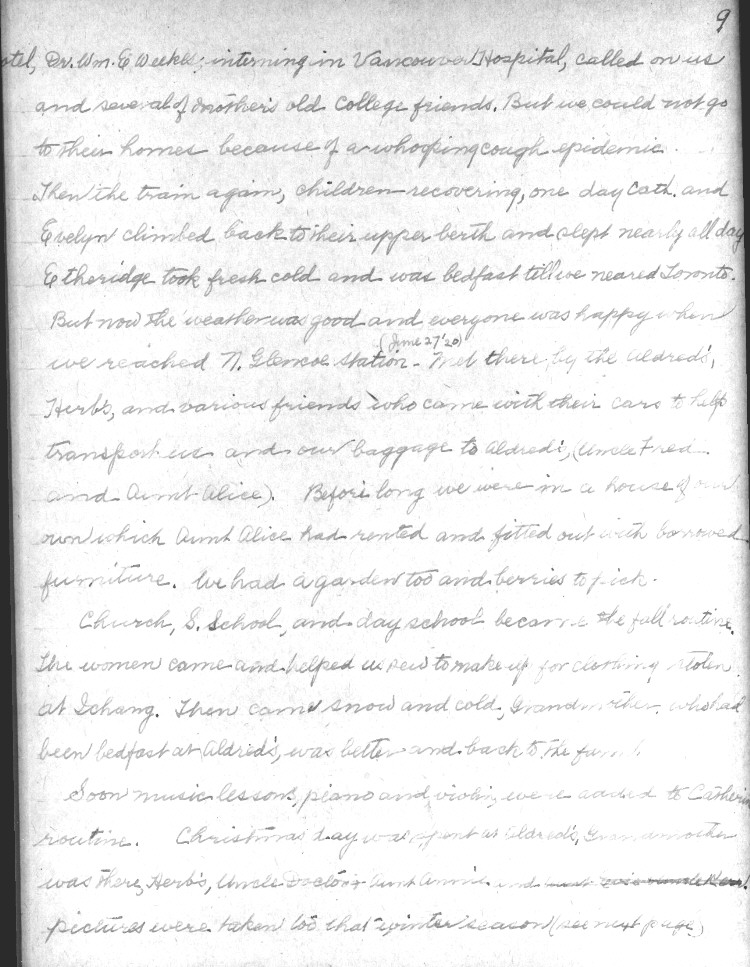 9
otel, Dr. Wm. E Weekes; interning in Vancouver Hospital, called on us
and several of mother's old college friends. But we could not go
to their homes because of a whooping cough epidemic.
Then the train again, children recovering, one day Cath. and
Evelyn climbed back to their upper berth and slept nearly all day
Etheridge took fresh cold and was bedfast till we neared Toronto.
But now the weather was good and everyone was happy when
(June 27 '20)
we reached N. Glencoe station - Met there by the Aldred's,
Herb's, and various friends who came with their cars to help
transport us and our baggage to Aldred's, (Uncle Fred
and Aunt Alice). Before long we were in a house of our
own which Aunt Alice had rented and fitted out with borrowed
furniture. We had a garden too and berries to pick.
Church, S. School, and day school became the fall routine.
The women came and helped us sew to make up for clothing stolen
at Ichang. Then came snow and cold, Grandmother, who had
been bedfast at Aldred's, was better and back to the farm.
Soon music lessons, piano and violin, were added to Catherin
routine. Christmas day was spent at Aldred's, Grandmother
was there, Herb's, Uncle Doctor Aunt Annie and
pictures were taken too that winter season (see next page)